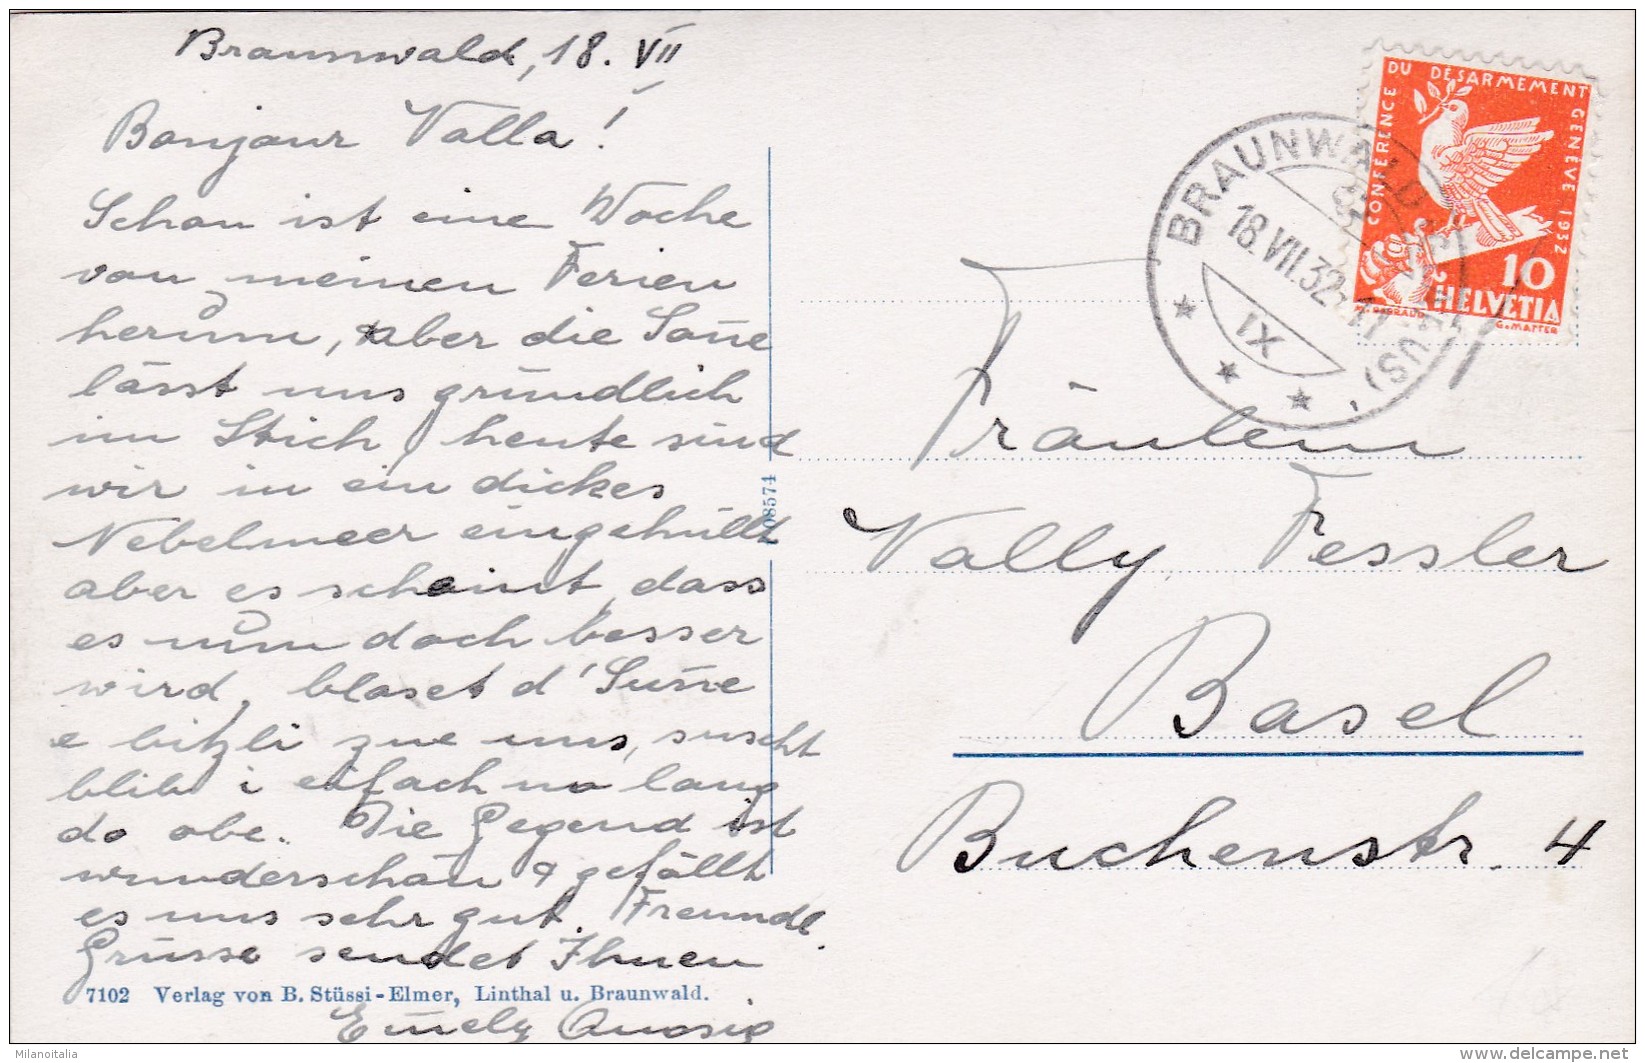 Braunwald, 18. VII
Bonjour Valla!
Schon ist eine Woche
von meinen Ferien
herum, aber die Son̄e
lässt uns gründlich
im Stich, heute sind
wir in ein dickes
Nebelmeer eingehüllt
aber es scheint, dass
es nun doch besser
wird, blaset d'Sun̄e
e bitzli zue uns, suscht
blibe i eifach no lang
do obe. Die Gegend ist
wunderschön & gefällt
es uns sehr gut. Freundl.
Grüsse sendet Ihnen
Em̄ely
7102 Verlag von B. Stüssi-Elmer, Linthal u. Braunwald.
08574
CONFÉRENCE DU DÉSARMEMENT GENÈVE·1932
10
HELVETIA
G. MATTER
BRAUNWALD
18.VII.32
XI
Fräulein
Vally Fessler
Basel
Buchenstr. 4
Milanoitalia
delcampe.net